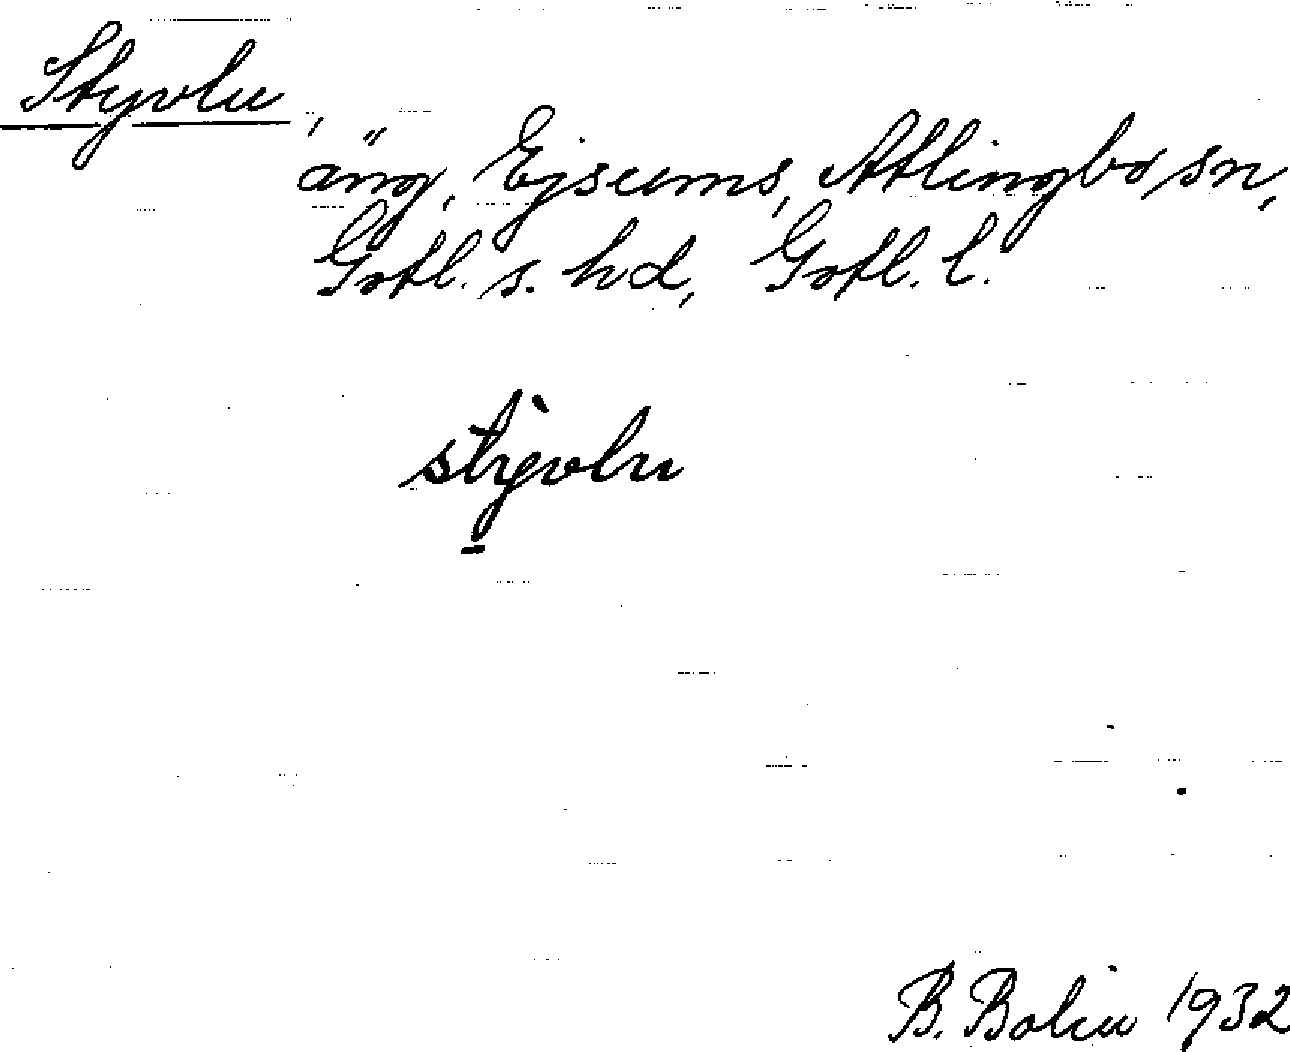 Styvlu,
äng, Ejsums, Atlingbo sn,
Gotl. s. hd, Gotl. l.
stỳvlu
B. Bolin 1932